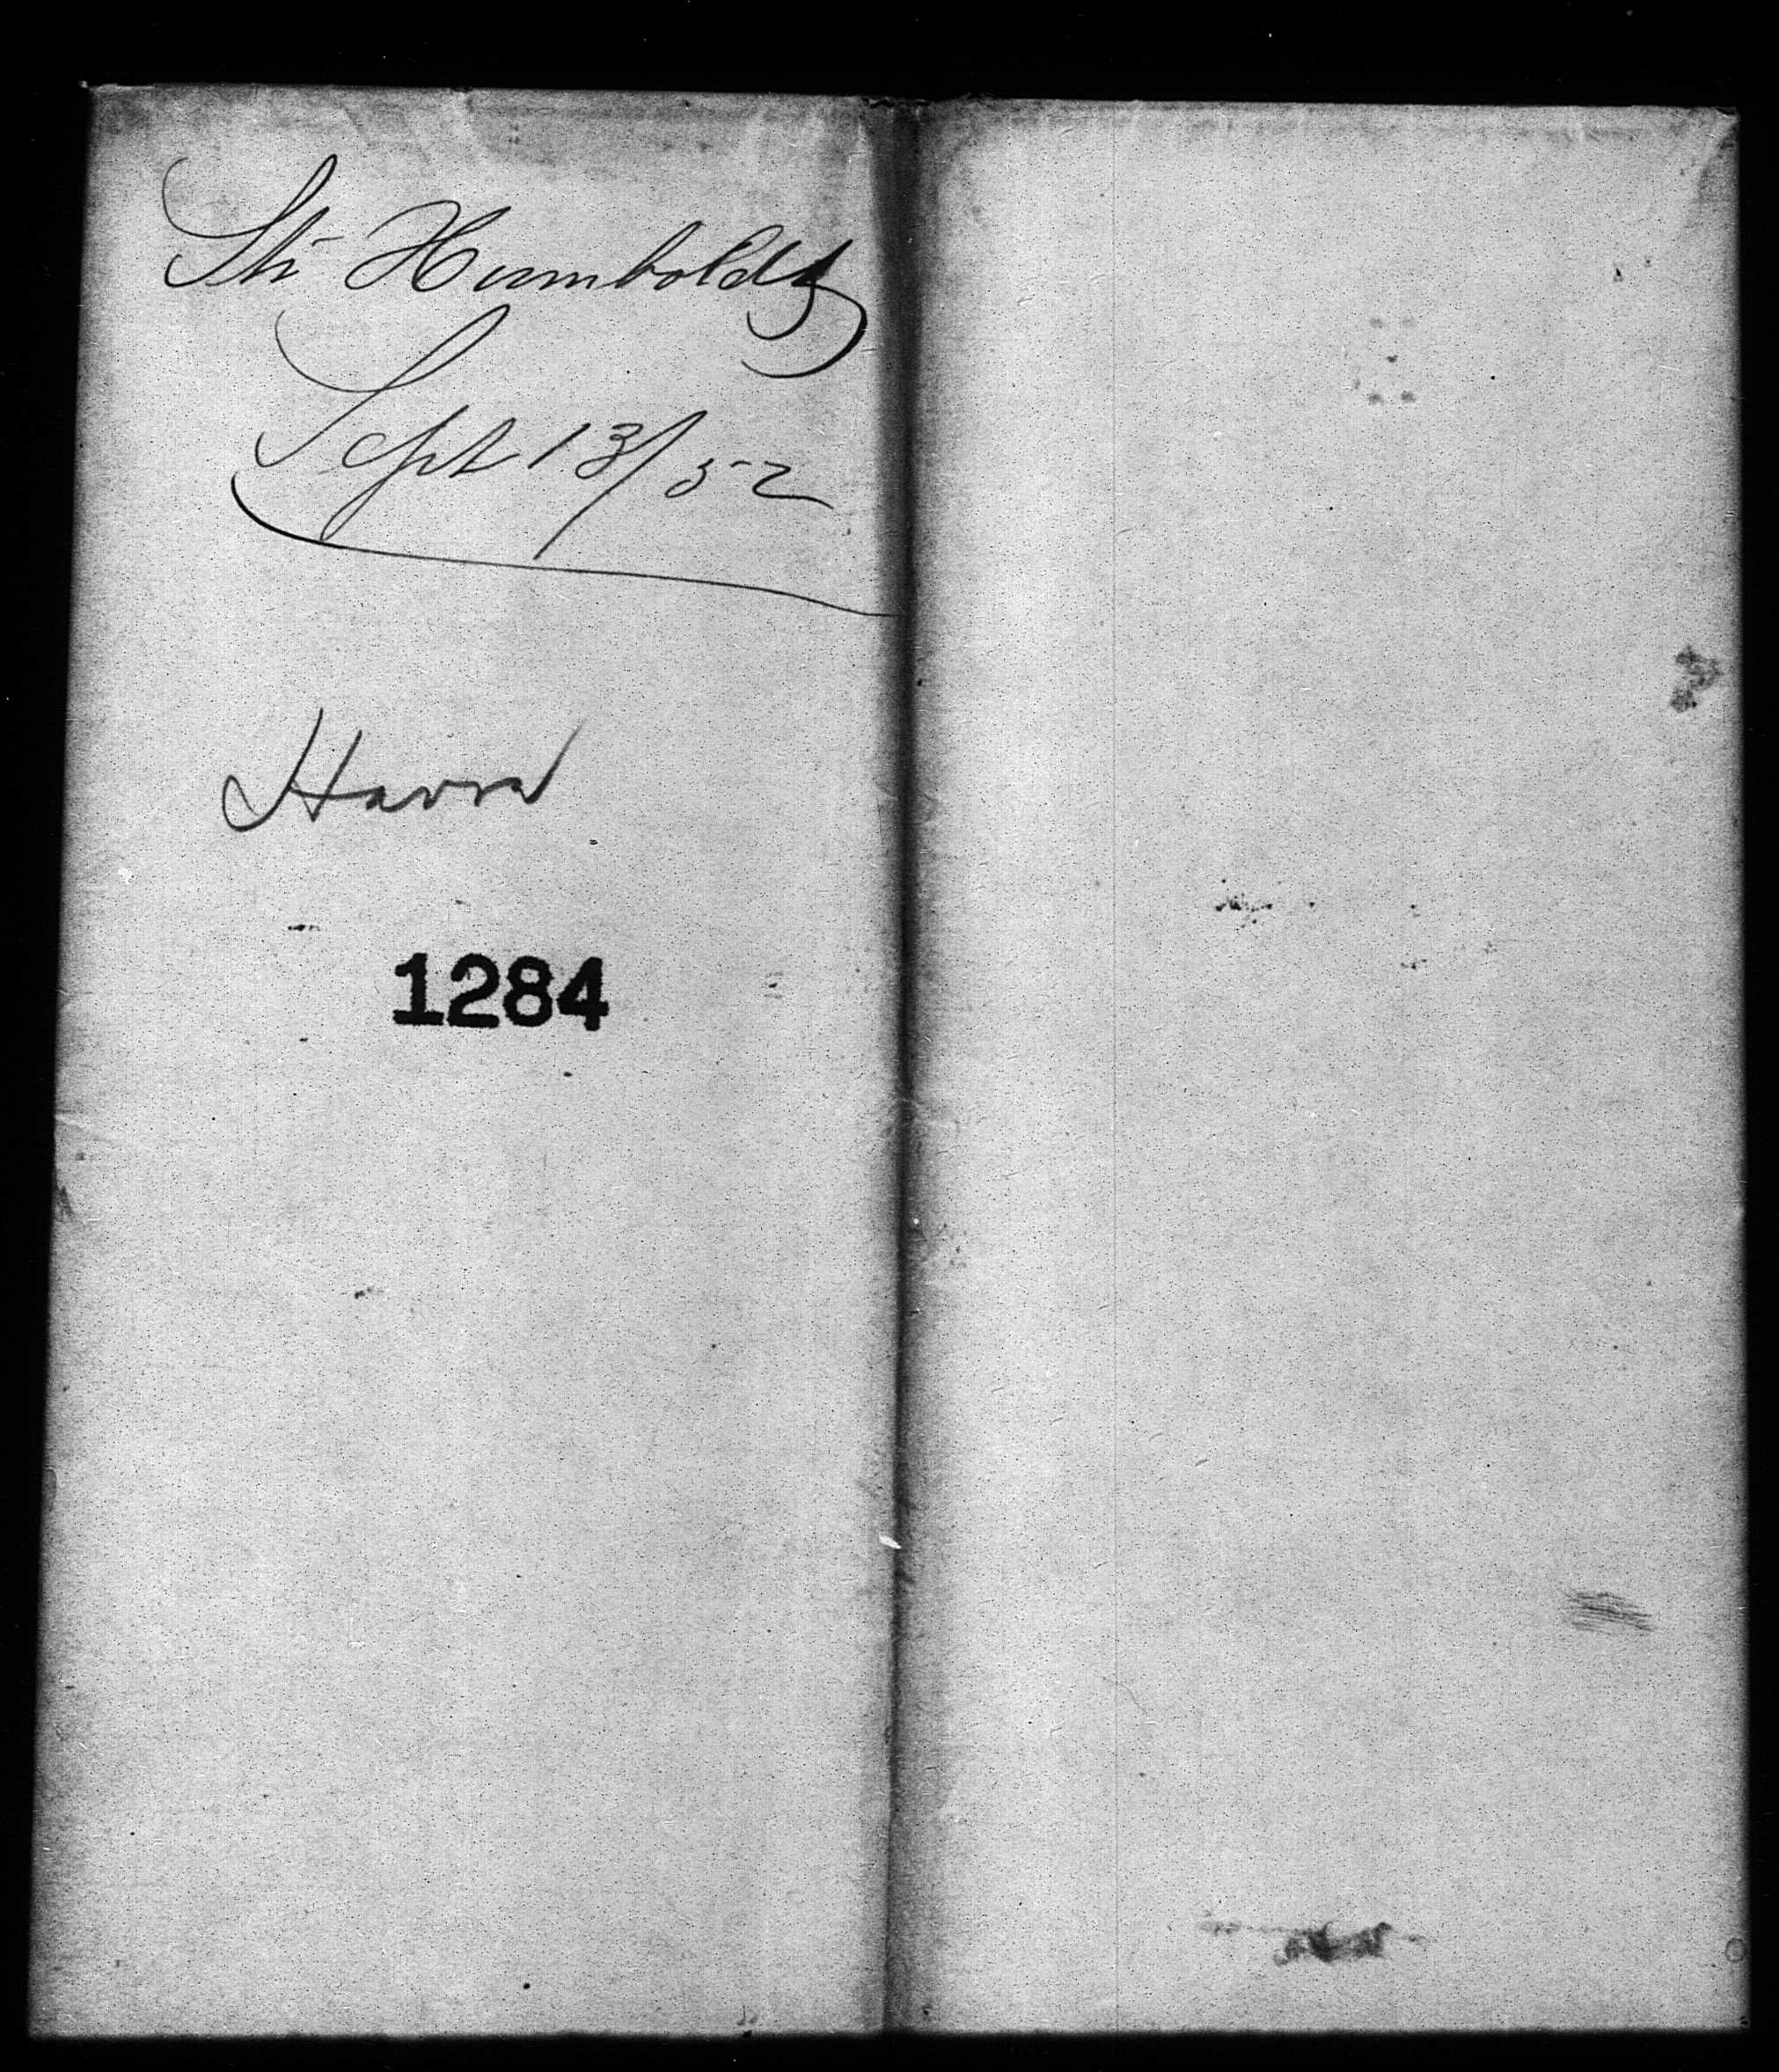 Sh Humboldt
Sept 13/52
Havre
1284